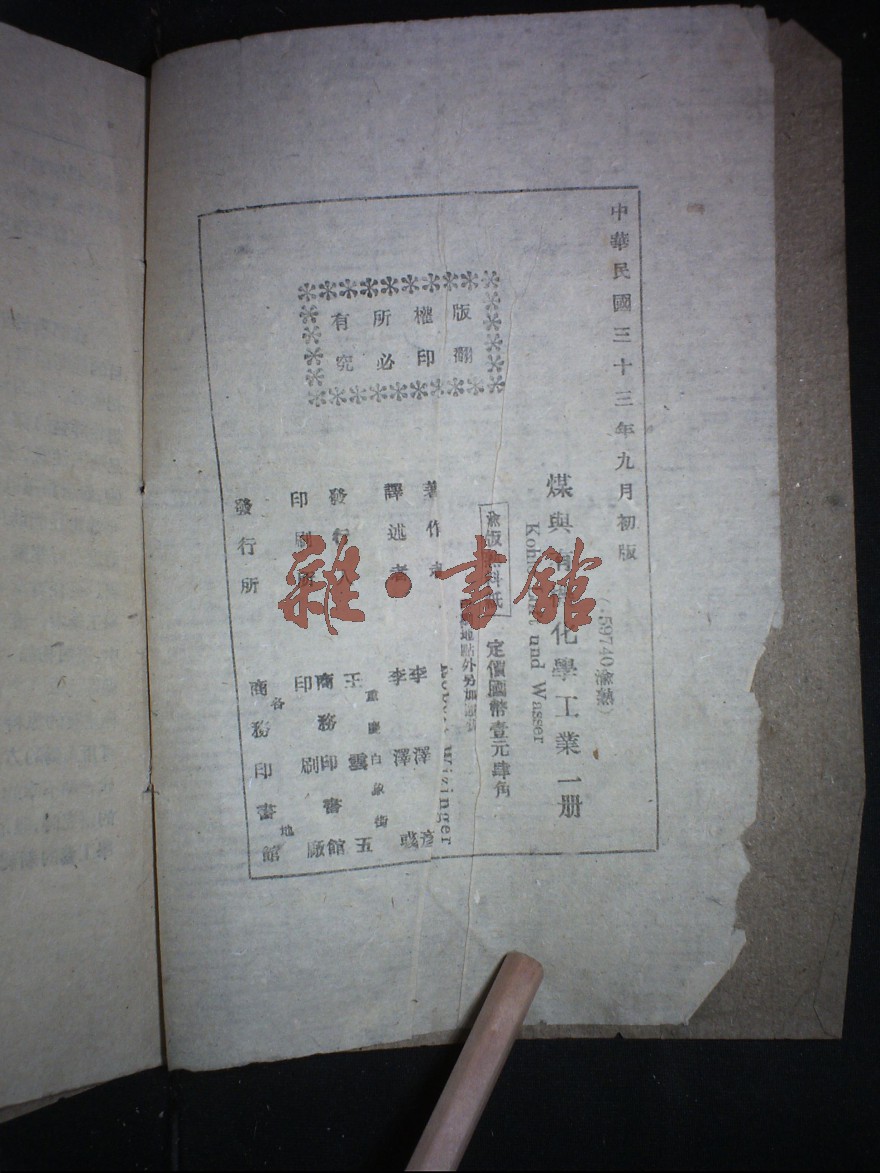 中華民國三十三年九月初版
(59740渝熟)
煤與有機化學工業一册
Kohle Luft und Wasser
渝版 料紙 定價國幣壹元肆角
地點外另加運費
版權所有
翻印必究
著作者 Robert Wizinger
譯述者 李澤彥
李澤彧
重慶白象街
發行人 王雲五
印刷所 商務印書館
印刷廠
各地
發行所 商務印書館
雜·書館